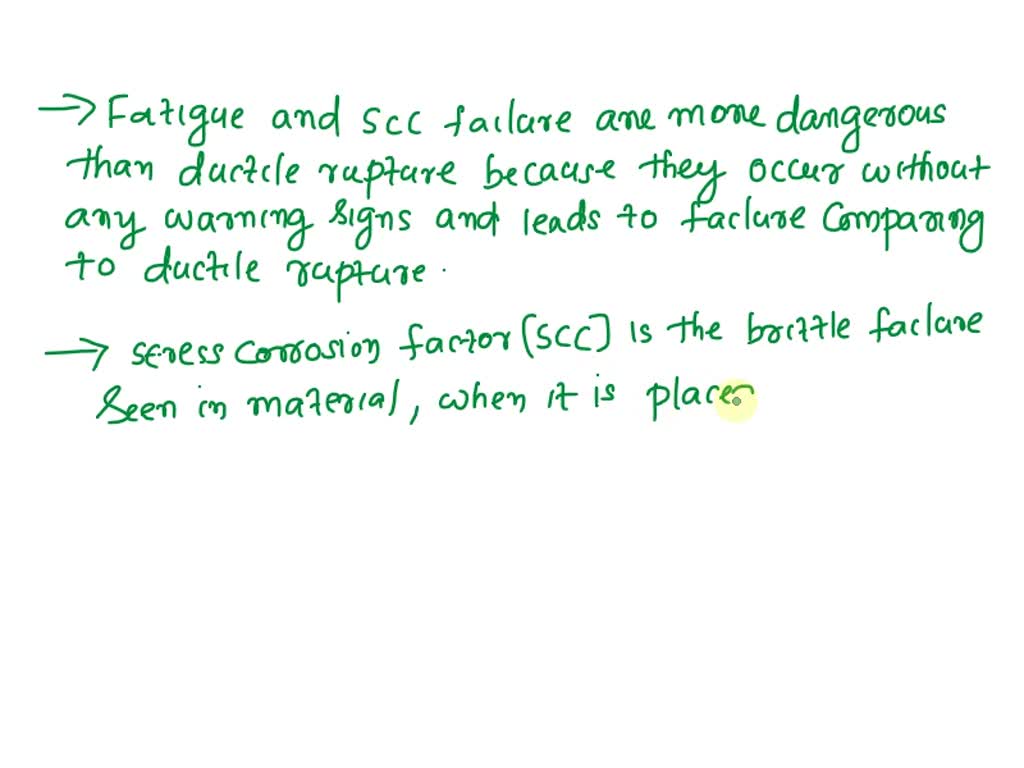 → Fatigue and SCC failure are more dangerous
than ductile rupture because they occur without
any warning signs and leads to failure Comparing
to ductile rupture.
→ Stress corrosion factor (SCC) is the brittle failure
Seen in material, when it is place